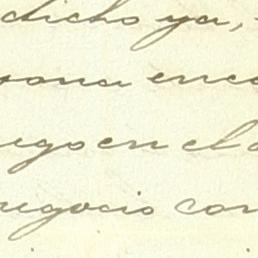 dicho ya,
sona enco
ego en el
negocio con